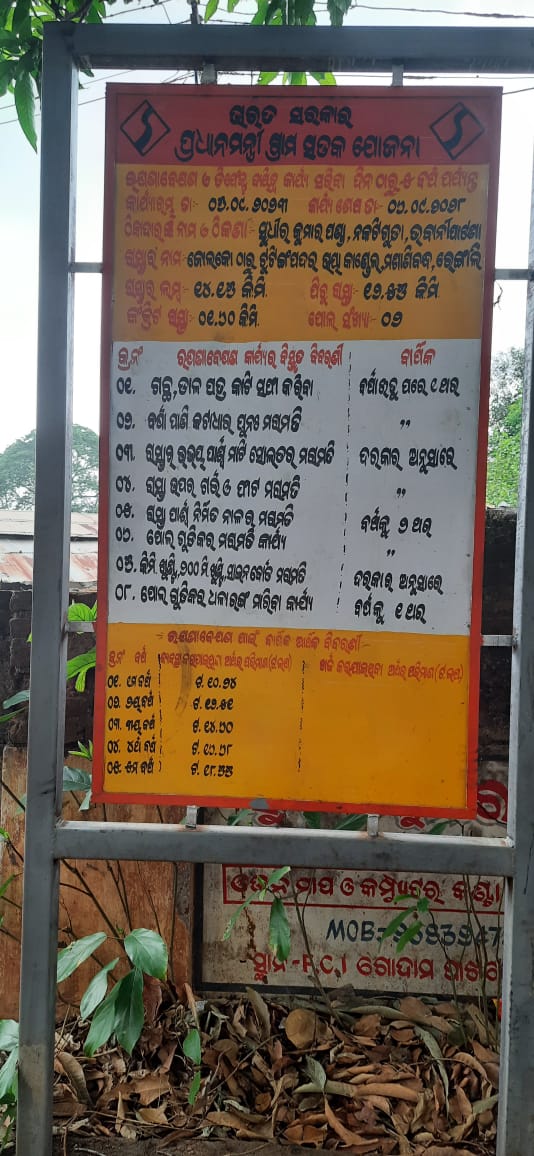 ଭାରତ ସରକାର
ପ୍ରଧାନମନ୍ତ୍ରୀ ଗ୍ରାମ ସଡକ ଯୋଜନା
ରକ୍ଷଣାବେକ୍ଷଣ ଓ ତ୍ରିପେକ୍ଷୀ କାର୍ଯ୍ୟ ସରିବା ଦିନ ଠାରୁ-୫ ବର୍ଷ ପର୍ଯ୍ୟନ୍ତ
କାର୍ଯ୍ୟାରମ୍ଭ ତା:- ୦୭.୦୯.୨୦୨୩ କାର୍ଯ୍ୟ ଶେଷ ତା:- ୦୬.୦୯.୨୦୨୮
ଠିକାଦାରଙ୍କ ନାମ ଓ ଠିକଣା:- ସୁଧୀର କୁମାର ପଣ୍ଡା, ନକଟିଗୁଡା, ଭବାନୀପାଟଣା
ରାସ୍ତାର ନାମ:- ଜୋଲକୋ ଠାରୁ ଟୁଟିଙ୍ଗପଦର ଭାୟା କାଣ୍ଡେଲ, ମଣାଶିବନ୍ଧ, ରେଙ୍ଗଲି
ରାସ୍ତାର ଲମ୍ବ:- ୧୪.୧୭ କି.ମି. ପିଚୁ ରାସ୍ତା:- ୧୨.୫୭ କି.ମି.
କଂକ୍ରିଟ ରାସ୍ତା:- ୦୧.୬୦ କି.ମି. ପୋଲ ସଂଖ୍ୟା:- ୦୨
କ୍ର.ନଂ ରକ୍ଷଣାବେକ୍ଷଣ କାର୍ଯ୍ୟର ବିସ୍ତୃତ ବିବରଣୀ ବାର୍ଷିକ
୦୧. ଗଛ, ଡାଳ ପତ୍ର କାଟି ସଫା କରିବା ବର୍ଷାଋତୁ ପରେ ୯ ଥର
୦୨. ବର୍ଷା ପାଣି କଟଧାର ପୁନଃ ମରାମତି ,,
୦୩. ରାସ୍ତାର ଉଭୟ ପାର୍ଶ୍ୱ ମାଟି ସୋଲଡର ମରାମତି ଦରକାର ଅନୁସାରେ
୦୪. ରାସ୍ତା ଉପର ଗର୍ତ୍ତ ଓ ଫାଟ ମରାମତି ,,
୦୫. ରାସ୍ତା ପାର୍ଶ୍ୱ ନିର୍ମିତ ନାଳର ମରାମତି ବର୍ଷକୁ ୨ ଥର
୦୬. ପୋଲ ଗୁଡିକର ମରାମତି କାର୍ଯ୍ୟ ,,
୦୭. କି.ମି. ଖୁଣ୍ଟି, ୨୦୦ ମି. ଖୁଣ୍ଟି, ସାଇନ ବୋର୍ଡ ମରାମତି ଦରକାର ଅନୁସାରେ
୦୮. ପୋଲ ଗୁଡିକର ଧଳା ରଙ୍ଗ ମାରିବା କାର୍ଯ୍ୟ ବର୍ଷକୁ ୧ ଥର
ରକ୍ଷଣାବେକ୍ଷଣ ପାଇଁ ବାର୍ଷିକ ଆର୍ଥିକ ବିବରଣୀ
କ୍ର.ନଂ ବର୍ଷ ଅର୍ଥର ପରିମାଣ (ଟ.ଲକ୍ଷ) ଖର୍ଚ୍ଚ କରାଯାଇଥିବା ଅର୍ଥର ପରିମାଣ (ଟ.ଲକ୍ଷ)
୦୧. ୧ମ ବର୍ଷ ଟ. ୧୦.୨୪
୦୨. ୨ୟ ବର୍ଷ ଟ. ୧୨.୫୧
୦୩. ୩ୟ ବର୍ଷ ଟ. ୧୪.୬୦
୦୪. ୪ର୍ଥ ବର୍ଷ ଟ. ୧୬.୬୮
୦୫. ୫ମ ବର୍ଷ ଟ. ୧୮.୭୭
ଓଜନ ମାପ ଓ କମ୍ପ୍ୟୁଟର କଣ୍ଟା
MOB-9683947
ସ୍ଥାନ-F.C.I ଗୋଦାମ ପାଖରେ